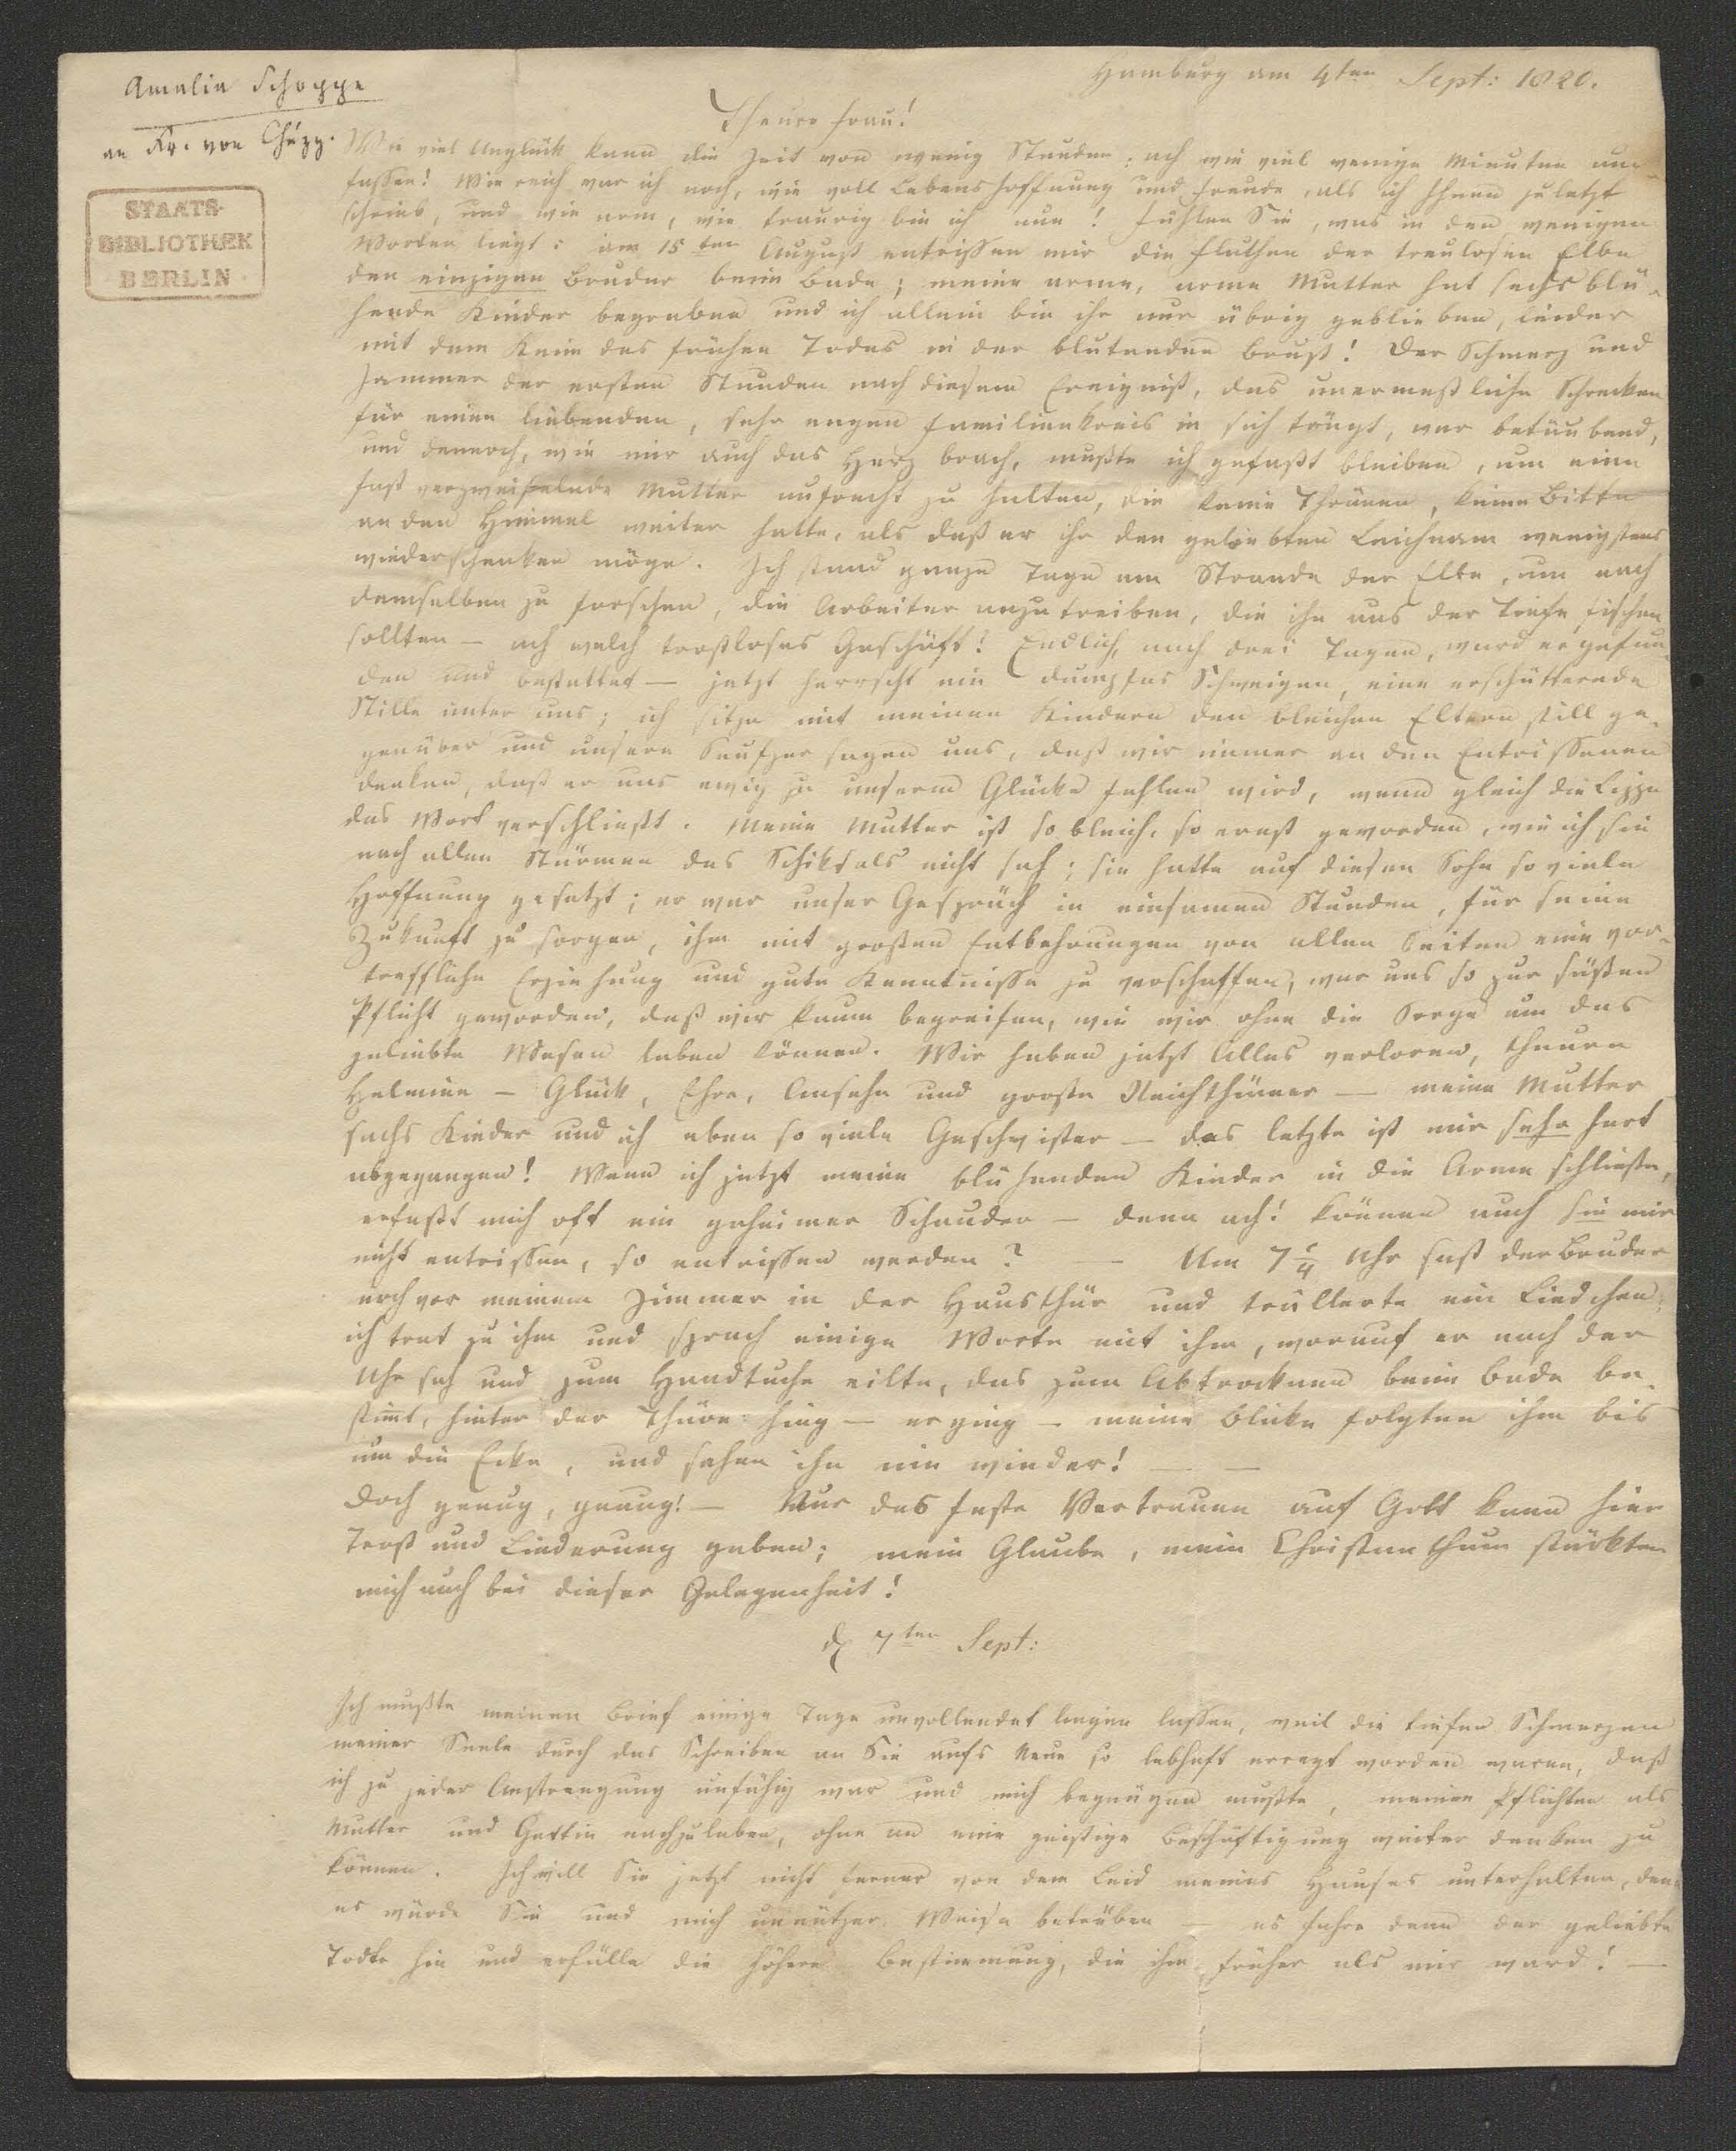 Amalia Schoppe
an Fr. von Chézy.
STAATS-
BIBLIOTHEK
BERLIN
Hamburg am 4ten Sept: 1820.
Theure Frau!
Wie viel Unglück kann die Zeit von wenig Stunden: ach wie viel wenige Minuten um-
fassen! Wie reich war ich noch, wie voll Lebenshoffnung und Freude, als ich Ihnen zuletzt
schrieb, und wie arm, wie traurig bin ich nun! Fühlen Sie, was in den wenigen
Worten liegt: am 15ten August entrissen mir die Fluthen der treulosen Elbe
den einzigen Bruder beim Bade; meine arme, arme Mutter hat sechs blü-
hende Kinder begraben und ich allein bin ihr nur übrig geblieben, leider
mit dem Keim des frühen Todes in der blutenden Brust! Der Schmerz und
Jammer der ersten Stunden nach diesem Ereigniß, das unermeßliche Schrecken
für einen liebenden, sehr engen Familienkreis in sich trägt, war betäubend,
und dennoch, wie mir auch das Herz brach, mußte ich gefaßt bleiben, um eine
fast verzweifelnde Mutter aufrecht zu halten, die keine Thränen, keine Bitte
an den Himmel weiter hatte, als daß er ihr den geliebten Leichnam wenigstens
wiederschenken möge. Ich stand ganze Tage am Strande der Elbe, um nach
demselben zu forschen, die Arbeiter anzutreiben, die ihn aus der Tiefe fischen
sollten — ach welch trostloses Geschäft! Endlich, nach drei Tagen, ward er gefun-
den und bestattet — jetzt herrscht ein dumpfes Schweigen, eine erschütternde
Stille unter uns; ich sitze mit meinen Kindern den bleichen Eltern still ge-
genüber und unsere Seufzer sagen uns, daß wir immer an den Entrissenen
denken, daß er uns ewig zu unserm Glücke fehlen wird, wenn gleich die Lippe
das Wort verschließt. Meine Mutter ist so bleich, so ernst geworden, wie ich sie
nach allen Stürmen des Schiksals nicht sah; sie hatte auf diesen Sohn so viele
Hoffnung gesetzt; er war unser Gespräch in einsamen Stunden, für seine
Zukunft zu sorgen, ihm mit großen Entbehrungen von allen Seiten eine vor-
treffliche Erziehung und gute Kenntnisse zu verschaffen, war uns so zur süßen
Pflicht geworden, daß wir kaum begreifen, wie wir ohne die Sorge um das
geliebte Wesen leben können. Wir haben jetzt Alles verloren, theure
Helmine — Glück, Ehre, Ansehn und große Reichthümer — meine Mutter
sechs Kinder und ich eben so viele Geschwister — das letzte ist mir sehr hart
abgegangen! Wenn ich jetzt meine blühenden Kinder in die Arme schließe,
erfaßt mich oft ein geheimer Schauder — denn ach! können auch sie mir
nicht entrissen, so entrissen werden? — Um 7 1/4 Uhr saß der Bruder
noch vor meinem Zimmer in der Hausthür und trüllerte ein Liedchen;
ich trat zu ihm und sprach einige Worte mit ihm, worauf er nach der
Uhr sah und zum Handtuche eilte, das zum Abtrocknen beim Bade be-
stimmt, hinter der Thüre hing — er ging — meine Blicke folgten ihm bis
um die Ecke, und sahen ihn nie wieder! — —
Doch genug, genug! — Nur das feste Vertrauen auf Gott kann hier
Trost und Linderung geben; mein Glaube, mein Christenthum stärkten
mich auch bei dieser Gelegenheit!
d 7ten Sept:
Ich mußte meinen Brief einige Tage unvollendet liegen lassen, weil die tiefen Schmerzen
meiner Seele durch das Schreiben an Sie aufs Neue so lebhaft erregt worden waren, daß
ich zu jeder Anstrengung unfähig war und mich begnügen mußte, meinen Pflichten als
Mutter und Gattin nachzuleben, ohne an eine geistige Beschäftigung weiter denken zu
können. Ich will Sie jetzt nicht ferner von dem Leid meines Hauses unterhalten, denn
es würde Sie und mich unnützer Weise betrüben — es fahre denn der geliebte
Todte hin und erfülle die höhere Bestimmung, die ihm früher als mir ward! —